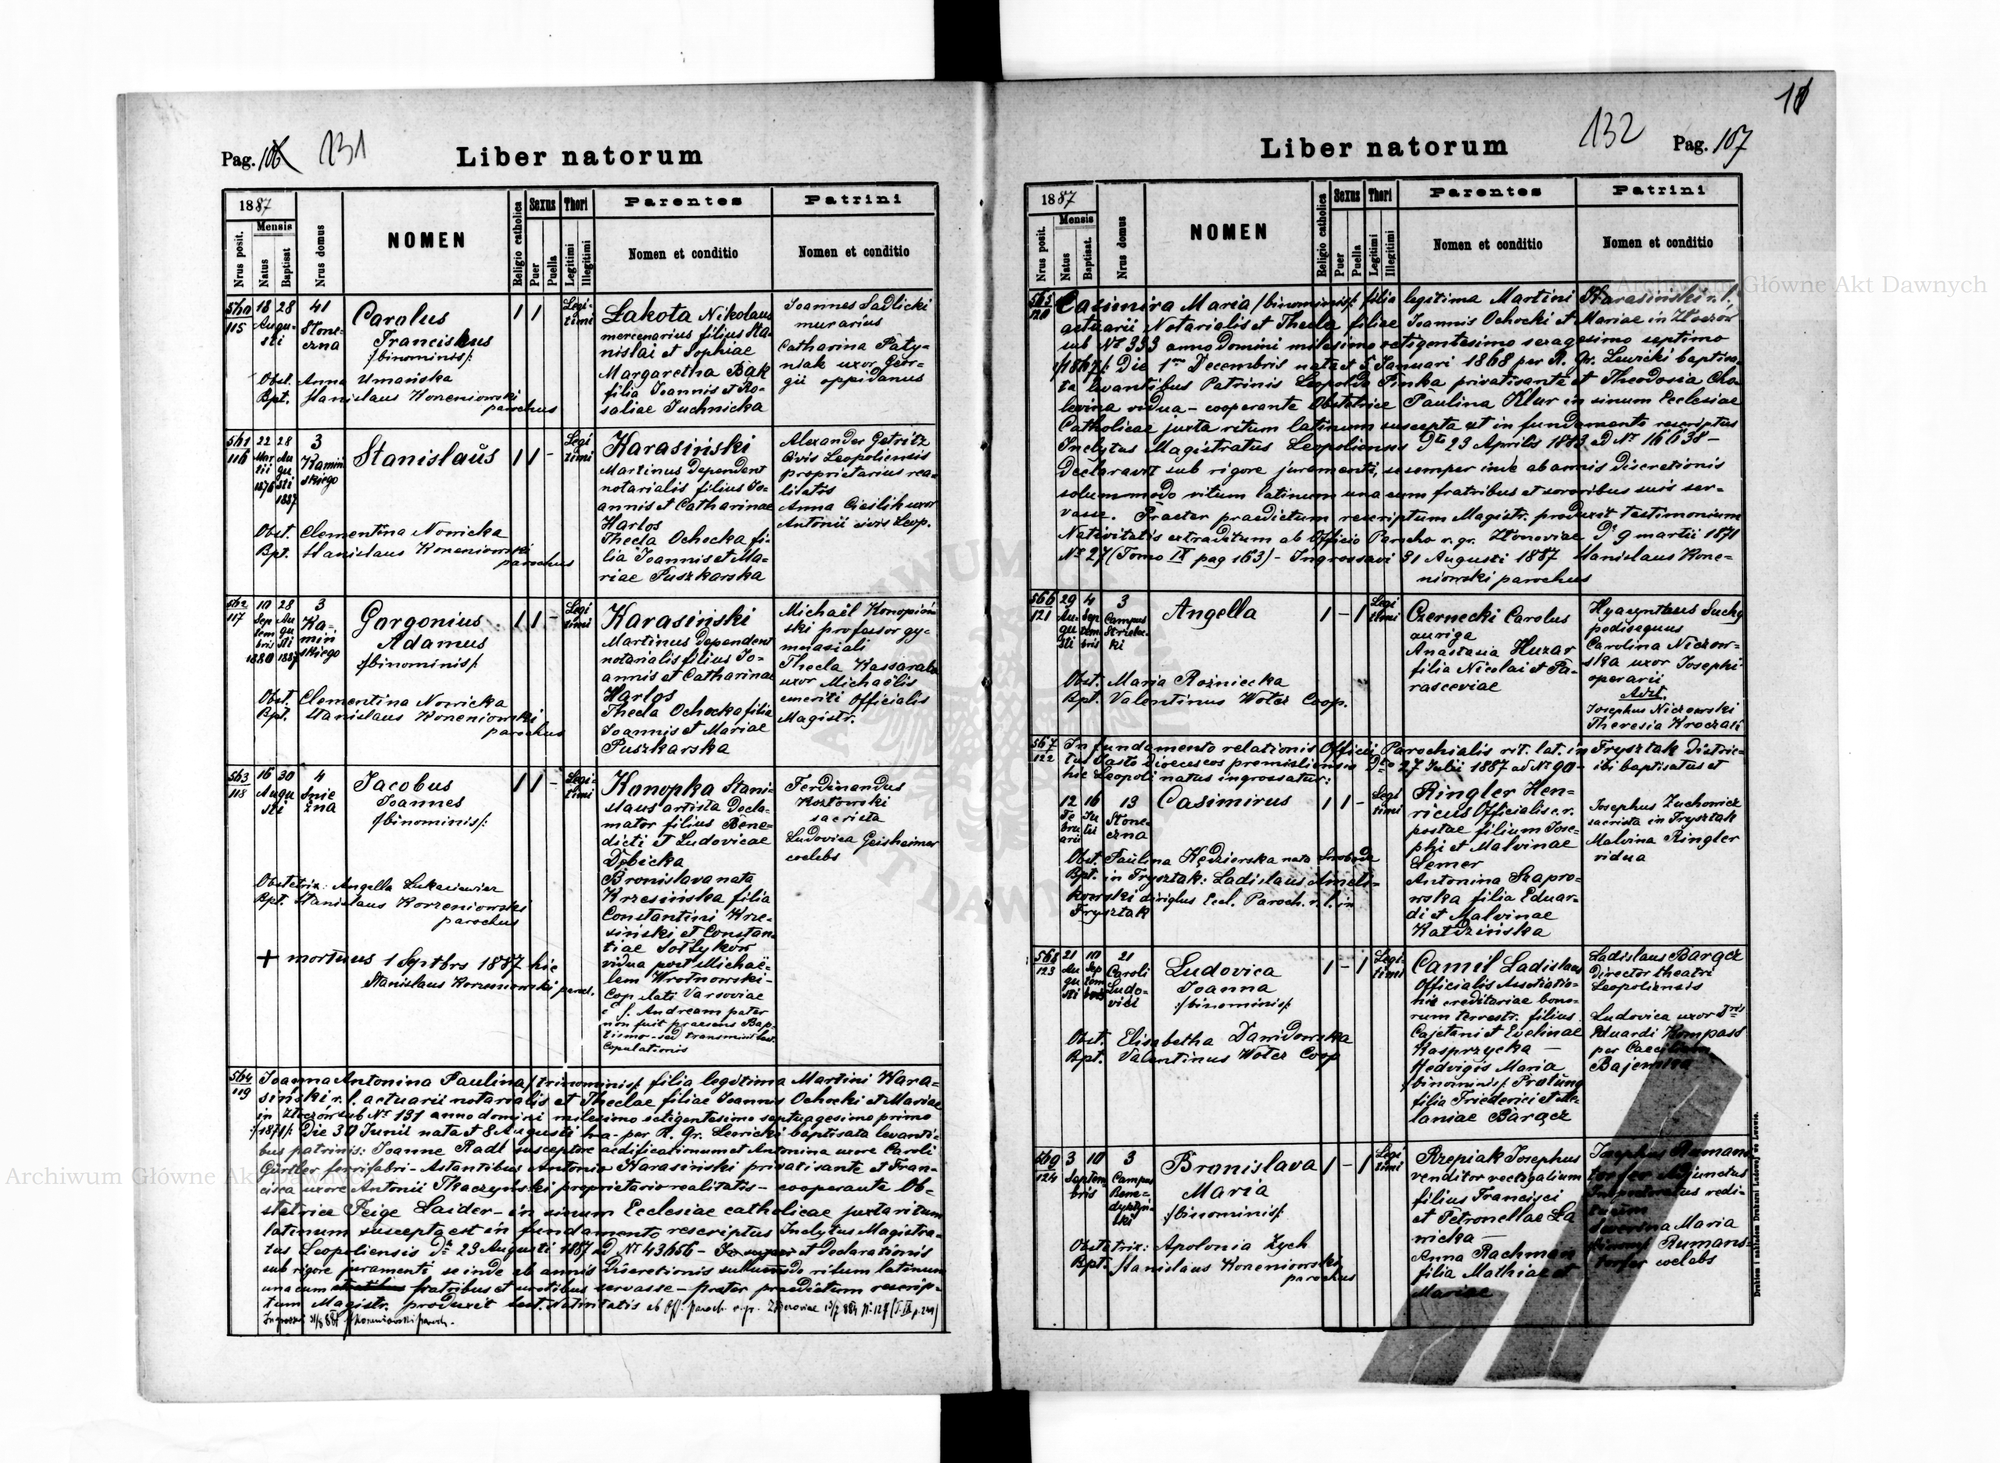 Pag. 106 131
Liber natorum
1887
Mensis
Nrus posit.
Natus
Baptisat
Nrus domus
NOMEN
Religio catholica
Sexus
Puer
Puella
Thori
Legitimi
Illegitimi
Parentes
Nomen et conditio
Patrini
Nomen et conditio
560
115
18 Augusti
28
41
Słoneczna
Carolus
Franciskus
/:binominis/:
Obst. Anna Umańska
Bpt. Stanislaus Korzeniowski
parochus
1 1
Legitimi
Łakota Nikolaus
mercenarius filius Sta-
nislai et Sophiae
Margaretha Bąk
filia Joannis et Ro-
saliae Juchnicka
Joannes Sadlicki
murarius
Catharina Paty-
niak uxor Geor-
gii oppidanus
561
116
22 Martii 1876
28 Augusti 1887
3
Kamińskiego
Stanislaus
Obst. Clementina Nowicka
Bpt. Stanislaus Korzeniowski
parochus
1 1 -
Legitimi
Harasiński
Martinus Dependent
notarialis, filius Jo-
annis et Catharinae
Harlos
Thecla Ochocka fi-
lia Joannis et Ma-
riae Puszkarska
Alexander Getritz
Civis Leopoliensis
proprietarius rea-
litatis
Anna Cieslik uxor
Antonii civis Leop.
562
117
10 Septembris 1880
28 Augusti 1887
3
Kamińskiego
Gorgonius
Adamus
/:binominis/:
Obst. Clementina Nowicka
Bpt. Stanislaus Korzeniowski
parochus
1 1 -
Legitimi
Harasiński
Martinus Dependent
notarialis filius Jo-
annis et Catharinae
Harlos
Thecla Ochocka filia
Joannis et Mariae
Puszkarska
Michaël Konopiń-
ski professor gy-
mnasiali
Thecla Kassaraba
uxor Michaëlis
emeriti Officialis
Magistr.
563
118
16 Augusti
30
4
Śnieżna
Jacobus
Joannes
/:binominis/:
Obstetrix: Angella Łukasiewicz
Bpt. Stanislaus Korzeniowski
parochus
+ mortuus 1 Septbrs 1887 hic
Stanislaus Korzeniowski paroch.
1 1 -
Legitimi
Konopka Stani-
slaus artista Decla-
mator filius Bene-
dicti et Ludovicae
Dębicka
Bronislava nata
Krzesińska filia
Constantini Krze-
siński et Constan-
tiae Sołtyków
vidua post Michaë-
lem Wrotnowski-
Copulati Varsoviae
Andream pater
non fuit praesens Bap-
tismo - sed transmisit test.
Copulationis
Ferdinandus
Kozłowski
sacrista
Ludovica Geisheimer
coelebs
564
119
Joanna Antonina Paulina /:trinominis/: filia legitima Martini Hara-
siński r. l. actuarii notarialis et Theclae filiae Joannis Ochocki et Mariae
in Złoczów sub Nr 131 anno domini milesimo octigentesimo septuagesimo primo
/:1871/: Die 30 Junii nata et 8 Augusti h.a. per R. Gr. Lewicki baptisata levanti-
bus patrinis: Joanne Radl susceptore aedificationum et Antonina uxore Caroli
Gürtler ferrifabri - Astantibus Antonio Harasiński privatisante et Fran-
cisca uxore Antonii Tkaczyński proprietario realitatis - cooperante Ob-
stetrice Feige Laider - in sinum Ecclesiae catholicae juxta ritum
latinum suscepta est in fundamento rescriptus Inclytus Magistra-
tus Leopoliensis Dto 23 Augusti 1887 ad Nr 43666 - et Declarationis
sub rigore juramenti se inde ab annis discretionis solummodo ritum latinum
una cum fratribus et sororibus servasse - praeter praedictum rescrip-
tum Magistr. produxit test. Nativitatis ab Off. paroch.
Ingrossavi 31/8 887 Korzeniowski paroch.
11
132 Pag. 107
Liber natorum
1887
Mensis
Nrus posit.
Natus
Baptisat.
Nrus domus
NOMEN
Religio catholica
Sexus
Puer
Puella
Thori
Legitimi
Illegitimi
Parentes
Nomen et conditio
Patrini
Nomen et conditio
565
120
Casimira Maria /:binominis/: filia legitima Martini Harasiński r. l.
actuarii Notarialis et Thecla filiae Joannis Ochocki et Mariae in Złoczów
sub No 333 anno domini milesimo octigentesimo sexagesimo septimo
/:1867/: Die 1ma Decembris nata et 5 Januari 1868 per R. Gr. Lewicki baptisa-
ta levantibus Patrinis Leopoldo Pinka privatisante et Theodosia Cho-
levina vidua - cooperante Obstetrice Paulina Klur in sinum Ecclesiae
Catholicae juxta ritum latinum suscepta est in fundamento rescriptus
Inclytus Magistratus Leopoliensis Dto 23 Aprilis ad Nr 16638 -
Declaravit sub rigore juramenti, se semper inde ab annis discretionis
solummodo ritum latinum una cum fratribus et sororibus suis ser-
vasse. Praeter praedictum rescriptum Magistr. produxit testimonium
Nativitatis extraditum ab Officio Parocho r. gr. Dto 9 martii 1871
No 27 (Tomo IX pag 163) - Ingrossavi 31 Augusti 1887 Stanislaus Korze-
niowski parochus
566
121
29 Augusti
4 Septembris
3
Campus Strzelecki
Angella
Obst. Maria Rozniecka
Bpt. Valentinus Woter Coop.
1 - 1
Legitimi
Czernecki Carolus
auriga
Anastasia Huzar
filia Nicolai et Pa-
rasceviae
Hyacyntus Suchy
pedisequus
Carolina Niczow-
ska uxor Josephi
operarii
Adst.
Josephus Niczowski
Theresia Kroczak
567
122
In fundamento relationis Officii Parochialis rit. lat. in Frysztak distric-
tus Jasło dioeceseos premisliensis Dto 27 Julii 1887 ad Nr 90 - ibi baptisatus et
hic Leopoli natus ingrossatur:
12 Februarii
16 Julii
13
Słoneczna
Casimirus
Obst. Paulina Kędzierska nata Swoboda
Bpt. in Frysztak: Ladislaus
kowski dirigius Eccl. Paroch. r. l. in
Frysztak
1 1 -
Legitimi
Ringler Hen-
ricus Officialis c. r.
postae filium Jose-
phi et Malvinae
Lemer
Antonina Szapro-
wska filia Eduar-
di et Malvinae
Katzińska
Josephus Zuchowicz
sacrista in Frysztak
Malvina Ringler
vidua
568
123
21 Augusti
10 Septembris
21
Caroli Ludovici
Ludovica
Joanna
/:binominis/:
Obst. Elisabetha Dawidowska
Bpt. Valentinus Woter Coop
1 - 1
Legitimi
Camil Ladislaus
Officialis Assotiatio-
nis creditariae bono-
rum terrestr. filius
Cajetani et Evelinae
Kasprzycka -
Hedvigis Maria
/:binominis/: Prolüng
filia Friederici et Me-
laniae Bàrącz
Ladislaus Bàrącz
Director theatri
Leopoliensis
Ludovica uxor Dris
Eduardi Kompass
per Caeciliam
Bajewska
569
124
3 Septembris
10
3
Campus Benedyktyński
Bronislava
Maria
/:binominis/:
Obstetrix: Apolonia Zych
Bpt. Stanislaus Korzeniowski
parochus
1 - 1
Legitimi
Rzepiak Josephus
venditor vectigalium
filius Francisci
et Petronellae Ła
nicka -
Anna Rachman
filia Mathiae et
Mariae
Josephus Rumans-
torfer Adjunctus
Inspectoratus redi-
tuum
Maria
Rumans-
torfer coelebs
Archiwum Główne Akt Dawnych
Archiwum Główne Akt Dawnych